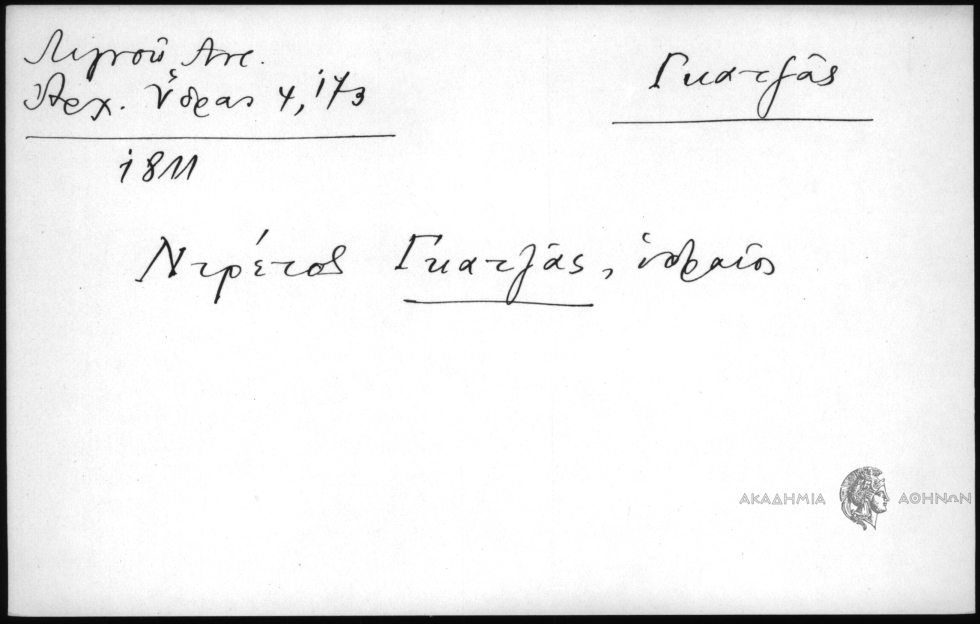 Λιγνοῦ Ἀντ.
Ἀρχ. Ὕδρας 4, 173
Γκατζᾶς
1811
Ντρέτος Γκατζᾶς, ὑδραῖος
ΑΚΑΔΗΜΙΑ ΑΘΗΝΩΝ